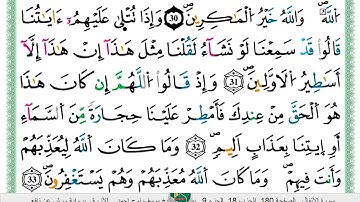 اَللَّهُۖ وَاللَّهُ خَيْرُ الْمَـٰكِرِينَۖ 30 وَإِذَا تُتْلَىٰ عَلَيْهِمُۥٓ ءَايَـٰتُنَا
قَالُوا۟ قَدْ سَمِعْنَا لَوْ نَشَآءُ لَقُلْنَا مِثْلَ هَـٰذَآ إِنْ هَـٰذَآ إِلَّآ
أَسَـٰطِيرُ الْأَوَّلِينَۖ 31 وَإِذْ قَالُوا۟ اللَّهُمَّ إِن كَانَ هَـٰذَا
هُوَ الْحَقَّ مِنْ عِندِكَ فَأَمْطِرْ عَلَيْنَا حِجَارَةً مِّنَ السَّمَآءِ
أَوِ اِئْتِنَا بِعَذَابٍ أَلِيمٍۖ 32 وَمَا كَانَ اللَّهُ لِيُعَذِّبَهُمْ
وَأَنتَ فِيهِمْۖ وَمَا كَانَ اللَّهُ مُعَذِّبَهُمْ وَهُمْ يَسْتَغْفِرُونَۖ 33